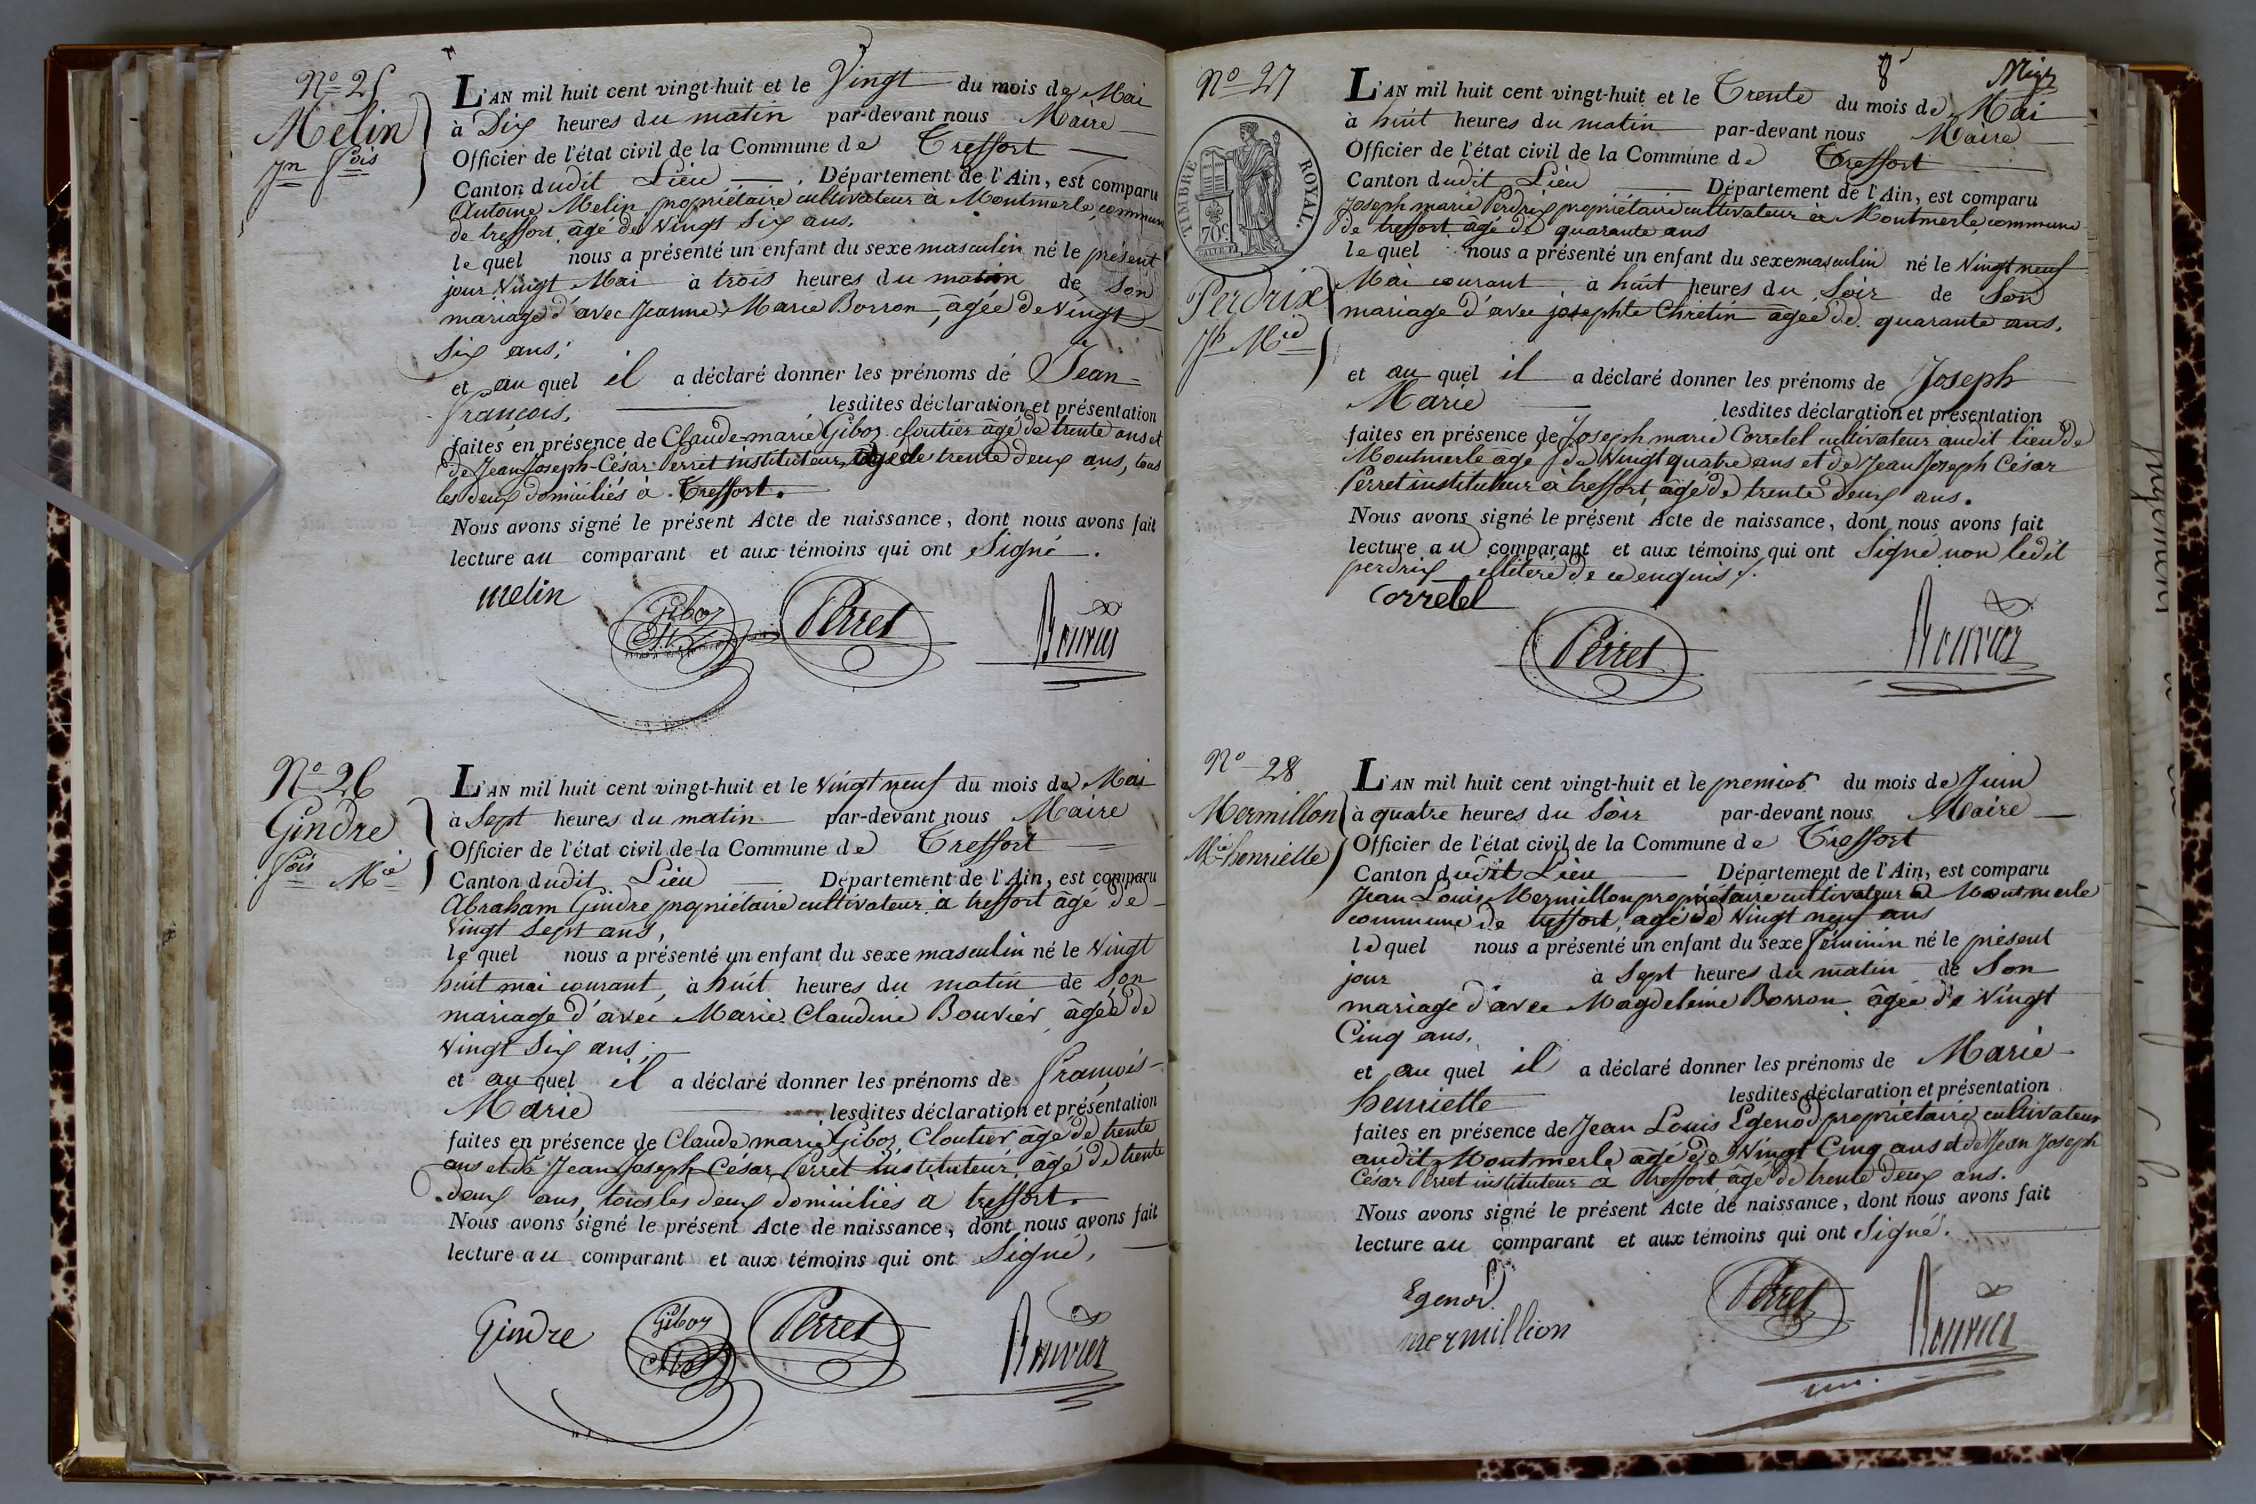 N.o 25
Melin
Jn fois
L'AN mil huit cent vingt-huit et le Vingt du mois de Mai
à Dix heures du matin par-devant nous Maire
Officier de l'état civil de la Commune de Treffort
Canton dudit Lieu . Département de l'Ain, est comparu
Antoine Melin propriétaire cultivateur à Montmerle commune
de treffort âgé de Vingt Six ans.
lequel nous a présenté un enfant du sexe masculin né le présent
jour Vingt Mai à trois heures du matin de Son
mariage d'avec Jeanne Marie Borron, âgée de Vingt
Six ans;
et au quel il a déclaré donner les prénoms de Jean-
françois, lesdites déclaration et présentation
faites en présence de Claude marie Giboz cloutier âgé de trente ans et
de Jean Joseph César Perret instituteur, âgé de trente deux ans, tous
les deux domiciliés à Treffort.
Nous avons signé le présent Acte de naissance, dont nous avons fait
lecture au comparant et aux témoins qui ont Signé.
melin
Giboz
Perret
Bouvier
N.o 26
Gindre
fois Mie
L'AN mil huit cent vingt-huit et le Vingt neuf du mois de Mai
à Sept heures du matin par-devant nous Maire
Officier de l'état civil de la Commune de Treffort
Canton dudit Lieu Département de l'Ain, est comparu
Abraham Gindre propriétaire cultivateur à treffort âgé de
Vingt Sept ans,
lequel nous a présenté un enfant du sexe masculin né le Vingt
huit mai courant, à huit heures du matin de Son
mariage d'avec Marie Claudine Bouvier âgée de
Vingt Six ans,
et au quel il a déclaré donner les prénoms de françois-
Marie lesdites déclaration et présentation
faites en présence de Claude marie Giboz Cloutier âgé de trente
ans et de Jean Joseph César Perret instituteur âgé de trente
deux ans, tous les deux domiciliés à treffort.
Nous avons signé le présent Acte de naissance, dont nous avons fait
lecture au comparant et aux témoins qui ont Signé,
Gindre
Giboz
Perret
Bouvier
8
N.o 27
TIMBRE ROYAL.
70c
Perdrix
Jh Mie
L'AN mil huit cent vingt-huit et le Trente du mois de Mai
à huit heures du matin par-devant nous Maire
Officier de l'état civil de la Commune de Treffort
Canton dudit Lieu Département de l'Ain, est comparu
Joseph marie Perdrix propriétaire cultivateur à Montmerle commune
de treffort âgé de quarante ans
lequel nous a présenté un enfant du sexe masculin né le Vingt neuf
Mai courant, à huit heures du Soir de Son
mariage d'avec josephte Chretin âgée de quarante ans,
et au quel il a déclaré donner les prénoms de Joseph
Marie lesdites déclaration et présentation
faites en présence de Joseph marie Corretel cultivateur audit lieu de
Montmerle agé de Vingt quatre ans et de Jean Joseph César
Perret instituteur à treffort, âgé de trente deux ans.
Nous avons signé le présent Acte de naissance, dont nous avons fait
lecture au comparant et aux témoins qui ont Signé non ledit
perdrix illiteré de ce enquis /.
Corretel
Perret
Bouvier
N.o 28
Mermillon
Mie henriette
L'AN mil huit cent vingt-huit et le premier du mois de Juin
à quatre heures du Soir par-devant nous Maire
Officier de l'état civil de la Commune de Treffort
Canton dudit Lieu Département de l'Ain, est comparu
Jean Louis Mermillon propriétaire cultivateur à Montmerle
commune de treffort, agé de Vingt neuf ans
lequel nous a présenté un enfant du sexe féminin né le présent
jour à Sept heures du matin de Son
mariage d'avec Magdeleine Borron âgée de Vingt
Cinq ans,
et au quel il a déclaré donner les prénoms de Marie
henriette lesdites déclaration et présentation
faites en présence de Jean Louis Egenod propriétaire cultivateur
audit Montmerle agé de Vingt Cinq ans et de Jean Joseph
César Perret instituteur à treffort âgé de trente deux ans.
Nous avons signé le présent Acte de naissance, dont nous avons fait
lecture au comparant et aux témoins qui ont Signé.
Egenod
mermillion
Perret
Bouvier